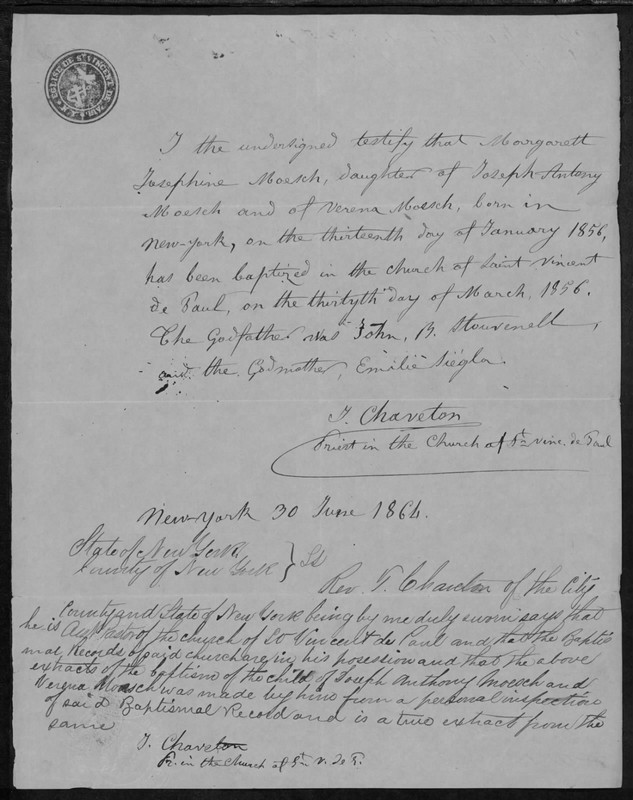 EGLISE DE ST VINCENT DE PAUL N.Y.
I the undersigned testify that Margarett
Josephine Moesch, daughter of Joseph Antony
Moesch and of Verena Moesch, born in
New-York, on the thirteenth day of January 1856,
has been baptized in the church of Saint Vincent
de Paul, on the thirtyth day of March, 1856.
The Godfather was John, B. Stouvenell,
and the Godmother, Emilie Siégla
J. Chaveton
Priest in the Church of St. Vinc. de Paul
New-York 30 June 1864.
State of New York
County of New York } SS
Rev. T. Chaveton of the City
County and State of New York being by me duly sworn says that
he is Ast Pastor of the church of St Vincent de Paul and that the Baptis
mal Records of said church are in his posession and that the above
extracts of the baptism of the child of Joseph Anthony Moesch and
Verena Moesch was made by him from a personal inspection
of said Baptismal Record and is a true extract from the
same
J. Chaveton
Pr. in the Church of St. V. de P.